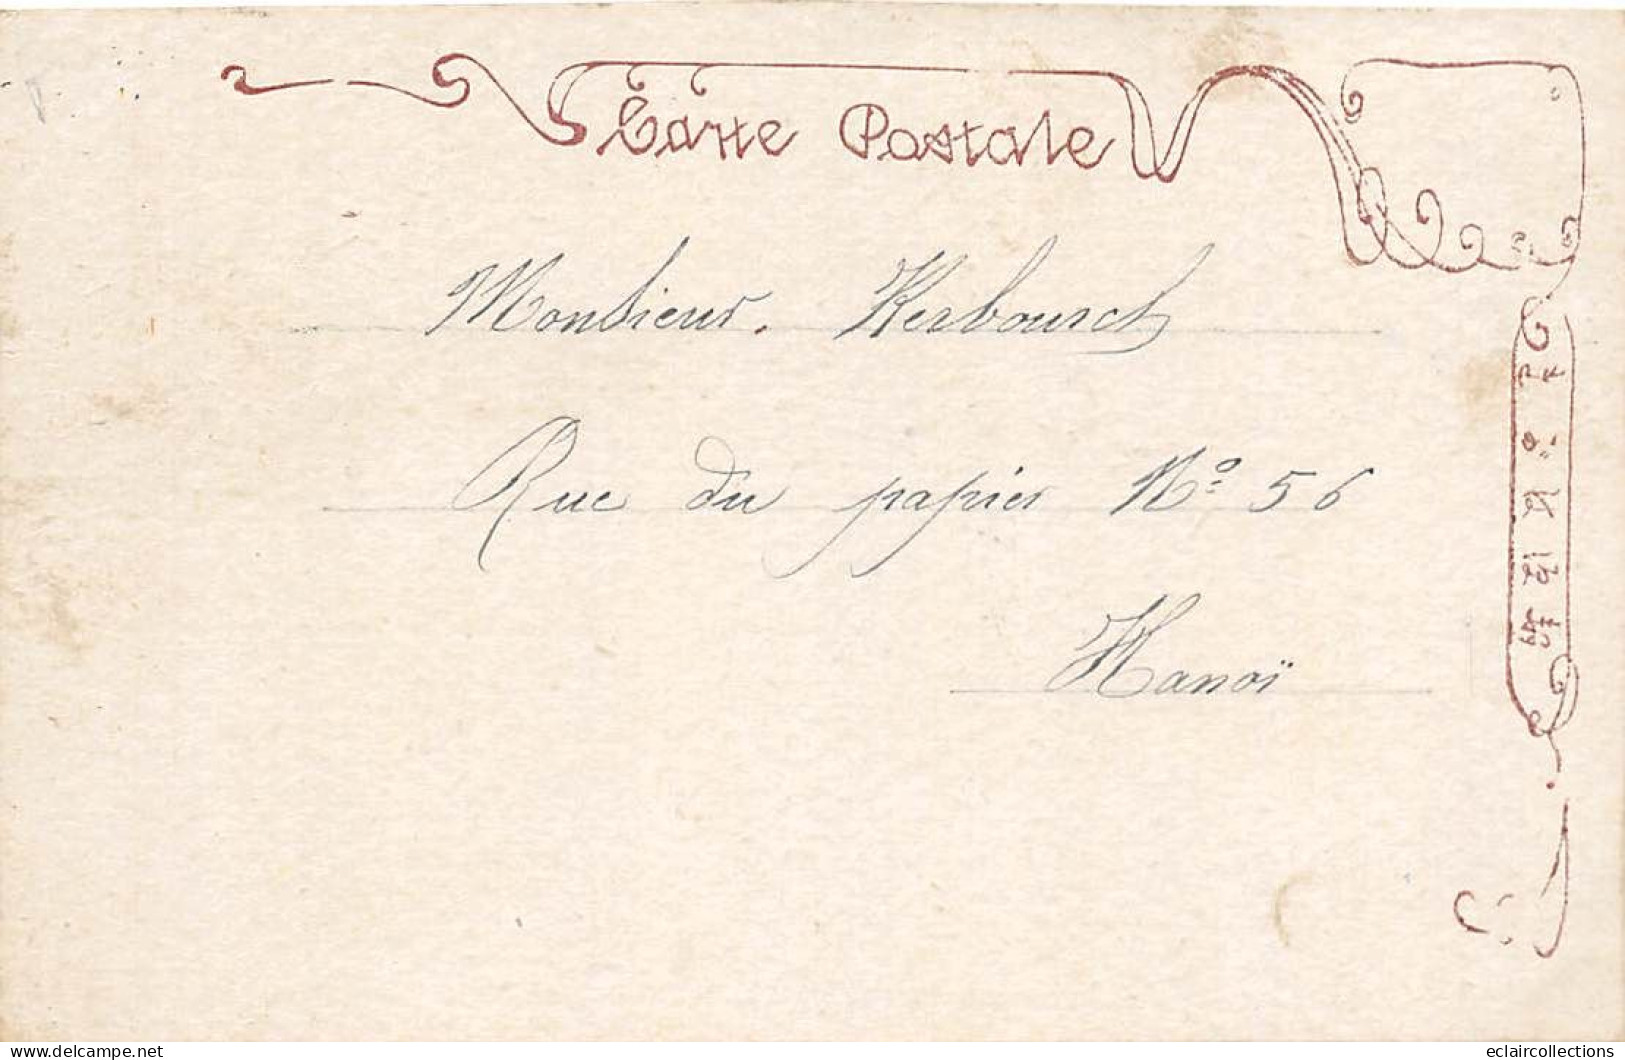 Carte Postale
Monsieur. Kerbourch
Rue du papier Nº 56
Hanoï
delcampe.net
eclaircollections